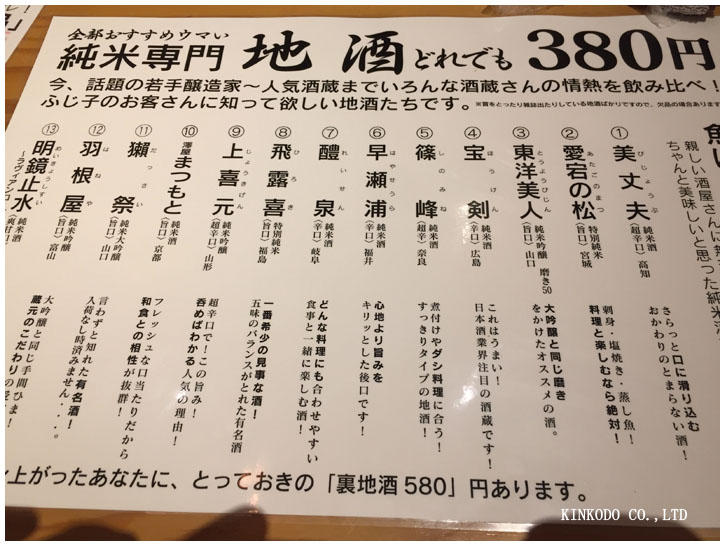 全部おすすめウマい
純米専門 地酒 どれでも 380円
今、話題の若手醸造家～人気酒蔵までいろんな酒蔵さんの情熱を飲み比べ！
ふじ子のお客さんに知って欲しい地酒たちです。※賞をとったり雑誌出たりしている地酒ばかりですので、欠品の場合あります
親しい酒屋さんに
ちゃんと美味しいと思った純米
① 美丈夫 びじょうぶ 純米酒 〈超辛口〉高知
さらっと口に滑り込む
おかわりのとまらない酒！
② 愛宕の松 あたごのまつ 特別純米 〈旨口〉宮城
刺身・塩焼き・蒸し魚！
料理と楽しむなら絶対！
③ 東洋美人 とうようびじん 純米吟醸 磨き50 〈旨口〉山口
大吟醸と同じ磨き
をかけたオススメの酒。
④ 宝剣 ほうけん 純米酒 〈辛口〉広島
これはうまい！
日本酒業界注目の酒蔵です！
⑤ 篠峰 しのみね 純米酒 〈超辛〉奈良
煮付けやダシ料理に合う！
すっきりタイプの地酒！
⑥ 早瀬浦 はやせうら 純米酒 〈辛口〉福井
心地より旨みを
キリッとした後口です！
⑦ 醴泉 れいせん 純米酒 〈辛口〉岐阜
どんな料理にも合わせやすい
食事と一緒に楽しむ酒！
⑧ 飛露喜 ひろき 特別純米 〈旨口〉福島
一番希少の見事な酒！
五味のバランスがとれた有名酒
⑨ 上喜元 じょうきげん 純米吟醸 〈超辛口〉山形
超辛口で！この旨み！
呑めばわかる人気の理由！
⑩ 澤屋まつもと 純米酒 〈旨口〉京都
フレッシュな口当たりだから
和食との相性が抜群！
⑪ 獺祭 だっさい 純米大吟醸 〈旨口〉山口
言わずと知れた有名酒！
入荷なし時済みません・・・。
⑫ 羽根屋 はねや 純米吟醸 〈旨口〉富山
大吟醸と同じ手間ひま！
蔵元のこだわり
⑬ 明鏡止水 めいきょうしすい 純米酒
～ラヴィアンロー
上がったあなたに、とっておきの「裏地酒 580」円あります。
KINKODO CO.,LTD